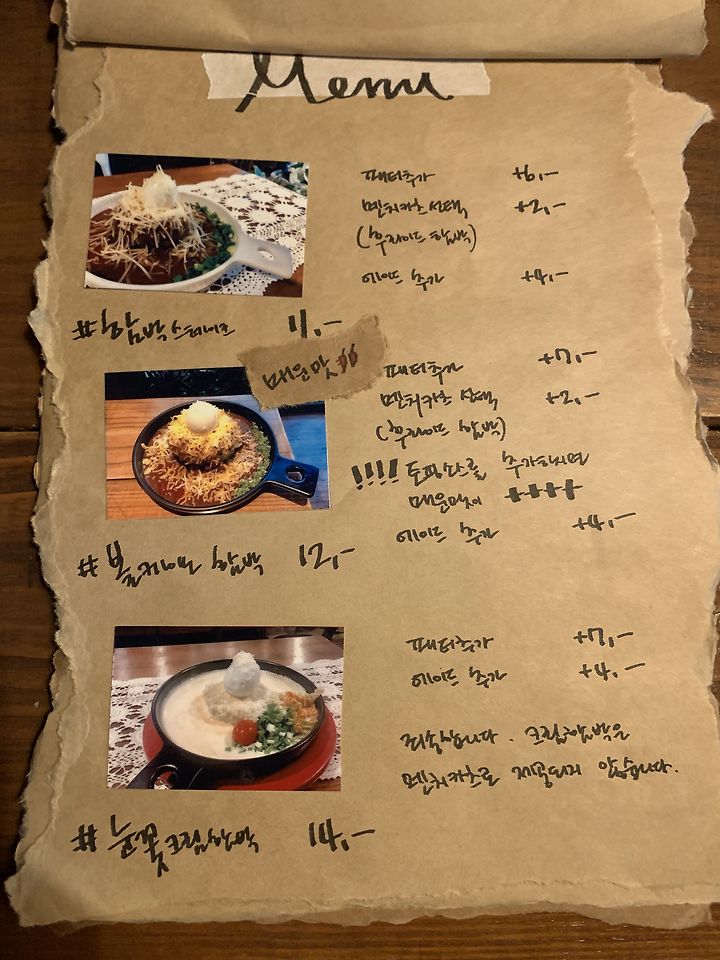 Menu
패티추가 +6,-
멘치카츠 선택 +2,-
(후라이드 함박)
에이드 추가 +4,-
#함박스테이크 11,-
매운맛
패티추가 +7,-
멘치카츠 선택 +2,-
(후라이드 함박)
!!!! 토핑소스를 추가하시면
매운맛이 ++++
에이드 추가 +4,-
# 함박 12,-
패티추가 +7,-
에이드 추가 +4,-
죄송합니다. 크림함박은
멘치카츠로 제공되지 않습니다.
# 눈꽃크림함박 14,-